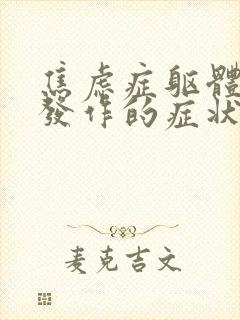 焦虑症躯體
發作的症狀
麦克吉文